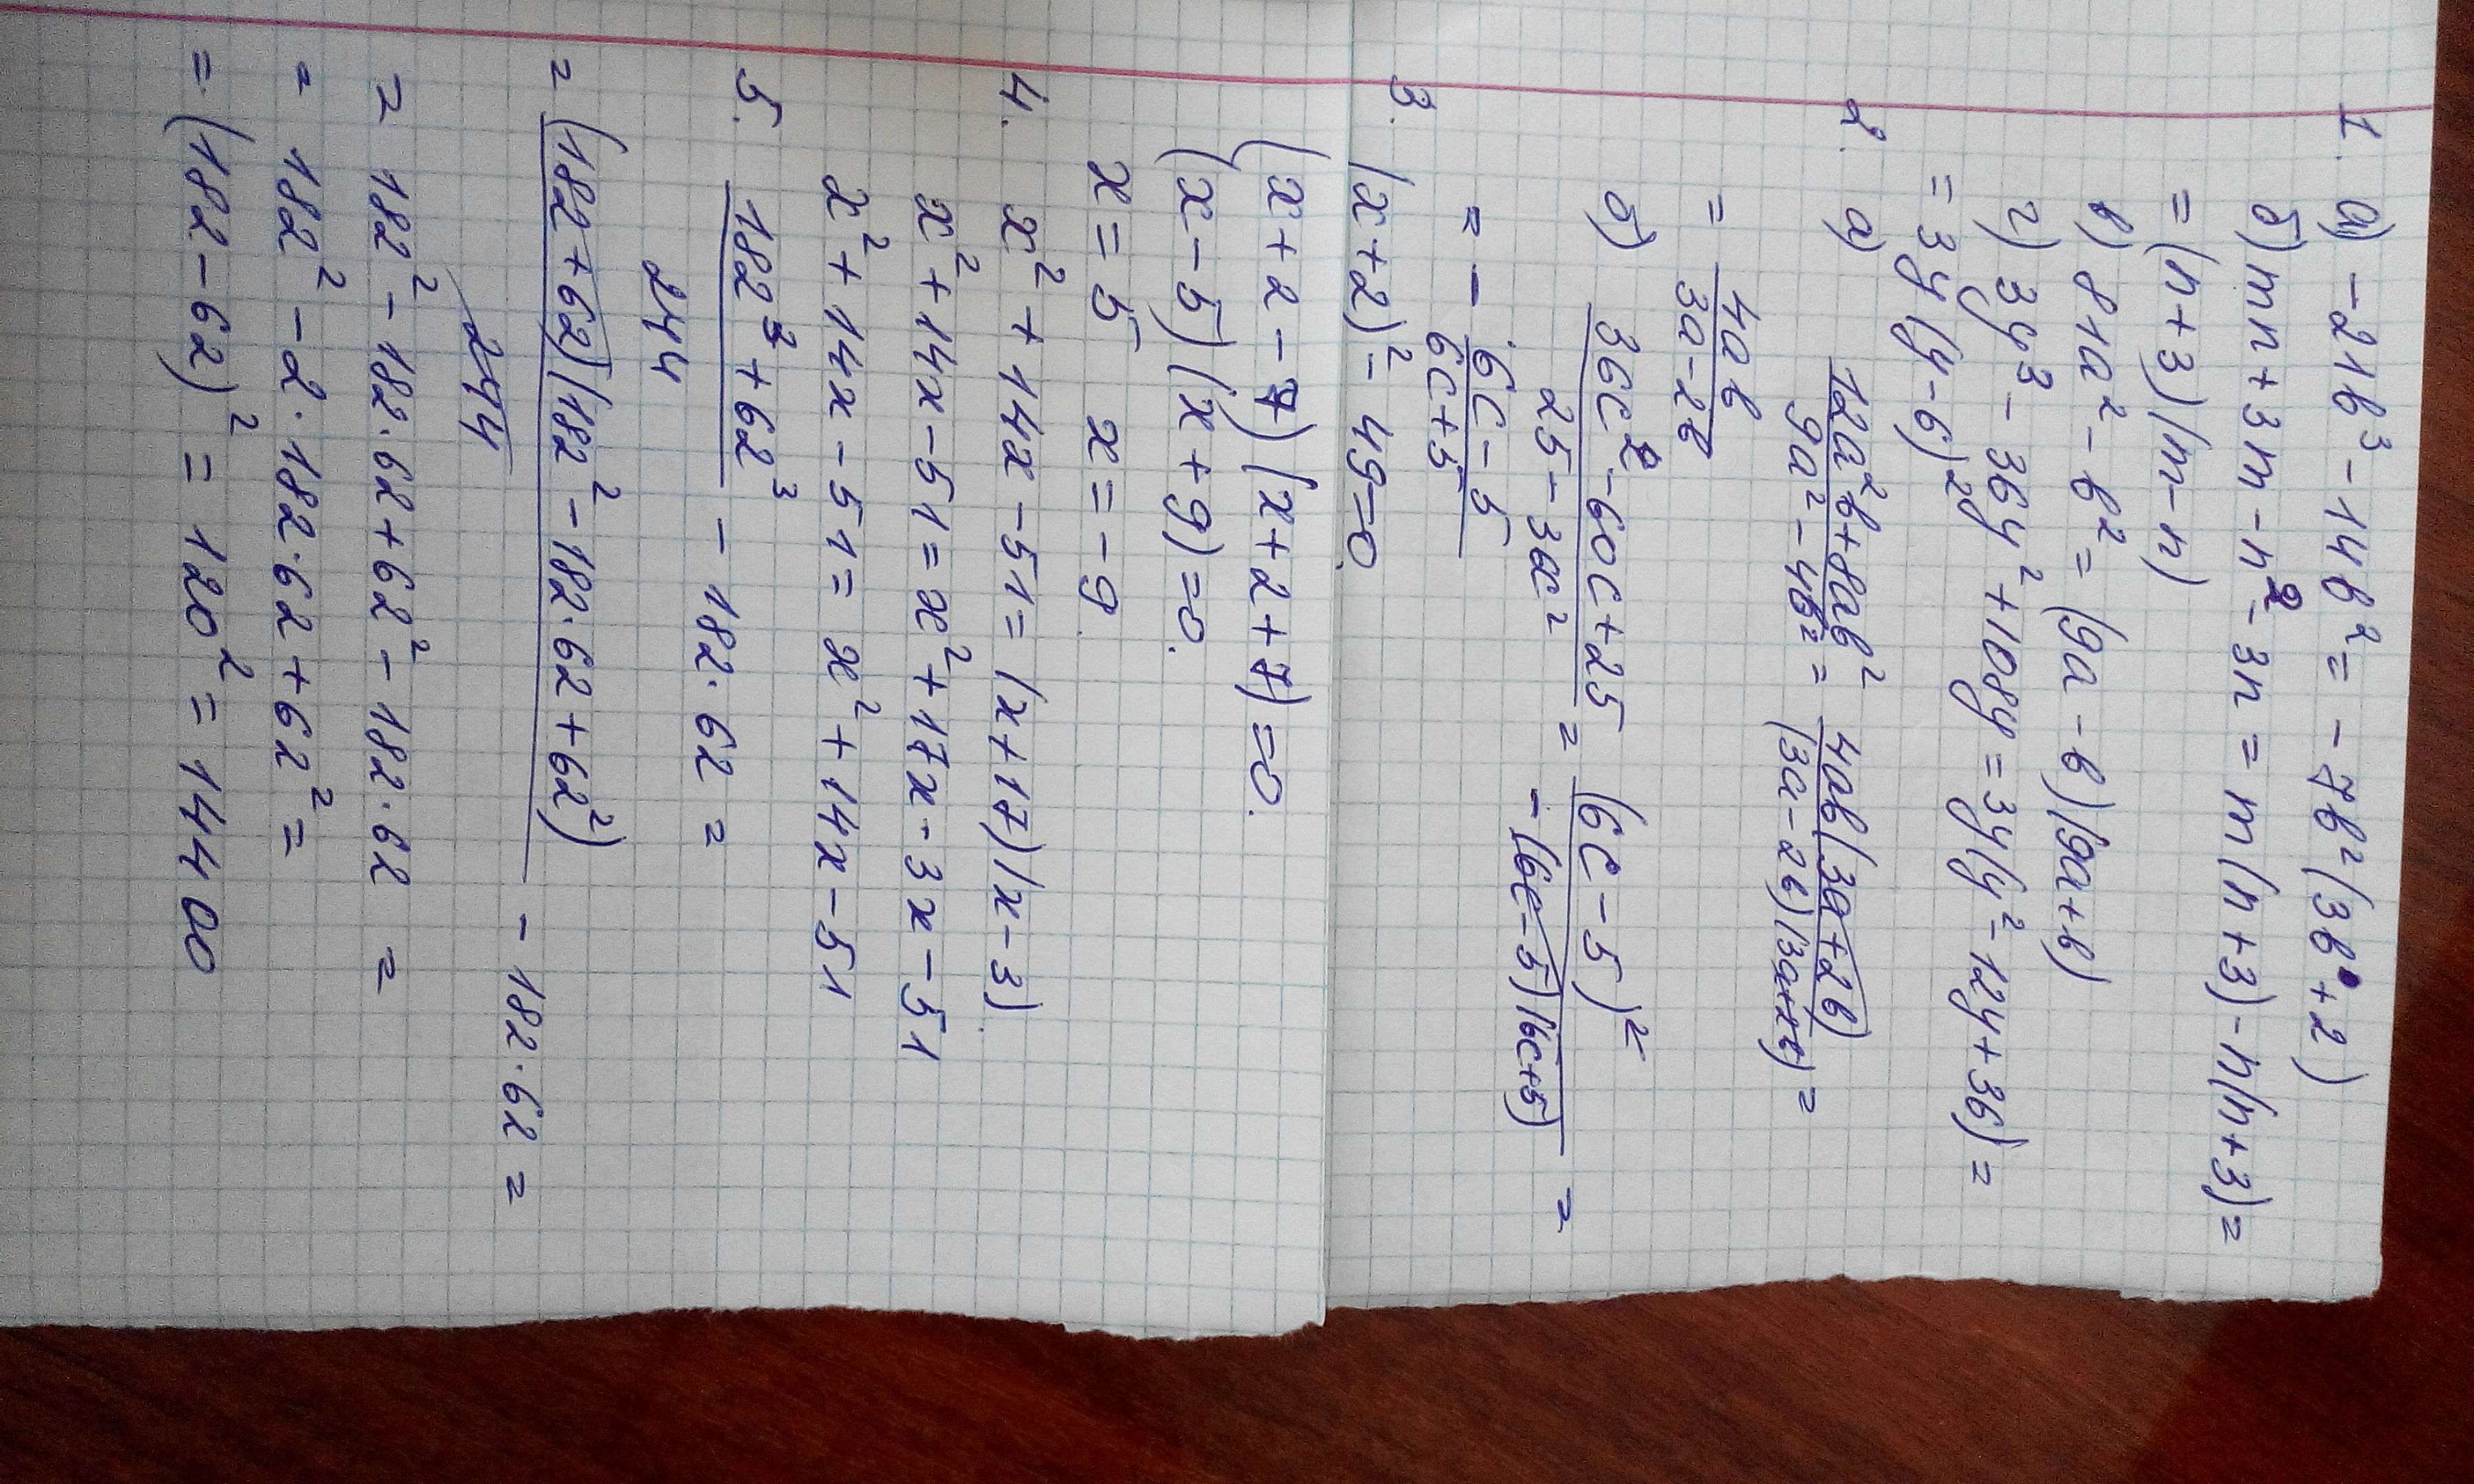 1. а) -21b³-14b²=-7b²(3b+2)
б) mn+3m-n²-3n=m(n+3)-n(n+3)=
=(n+3)(m-n)
в) 81a²-b²=(9a-b)(9a+b)
г) 3y³-36y²+108y=3y(y²-12y+36)=
=3y(y-6)²
2. а) (12a²b+8ab²)/(9a²-4b²)=(4ab(3a+2b))/((3a-2b)(3a+2b))=
=4ab/(3a-2b)
б) (36c²-60c+25)/(25-36c²)=(6c-5)²/(-(6c-5)(6c+5))=
=-(6c-5)/(6c+5)
3. (x+2)²-49=0.
(x+2-7)(x+2+7)=0.
(x-5)(x+9)=0.
x=5 x=-9.
4. x²+14x-51=(x+17)(x-3).
x²+14x-51=x²+17x-3x-51
x²+14x-51=x²+14x-51
5. (182³+62³)/244-182·62=
=((182+62)(182²-182·62+62²))/244-182·62=
=182²-182·62+62²-182·62=
=182²-2·182·62+62²=
=(182-62)²=120²=14400